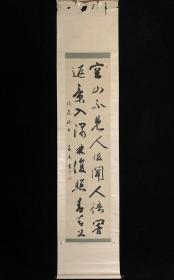 空山不见人但闻人语響
返景入深林復照青苔上